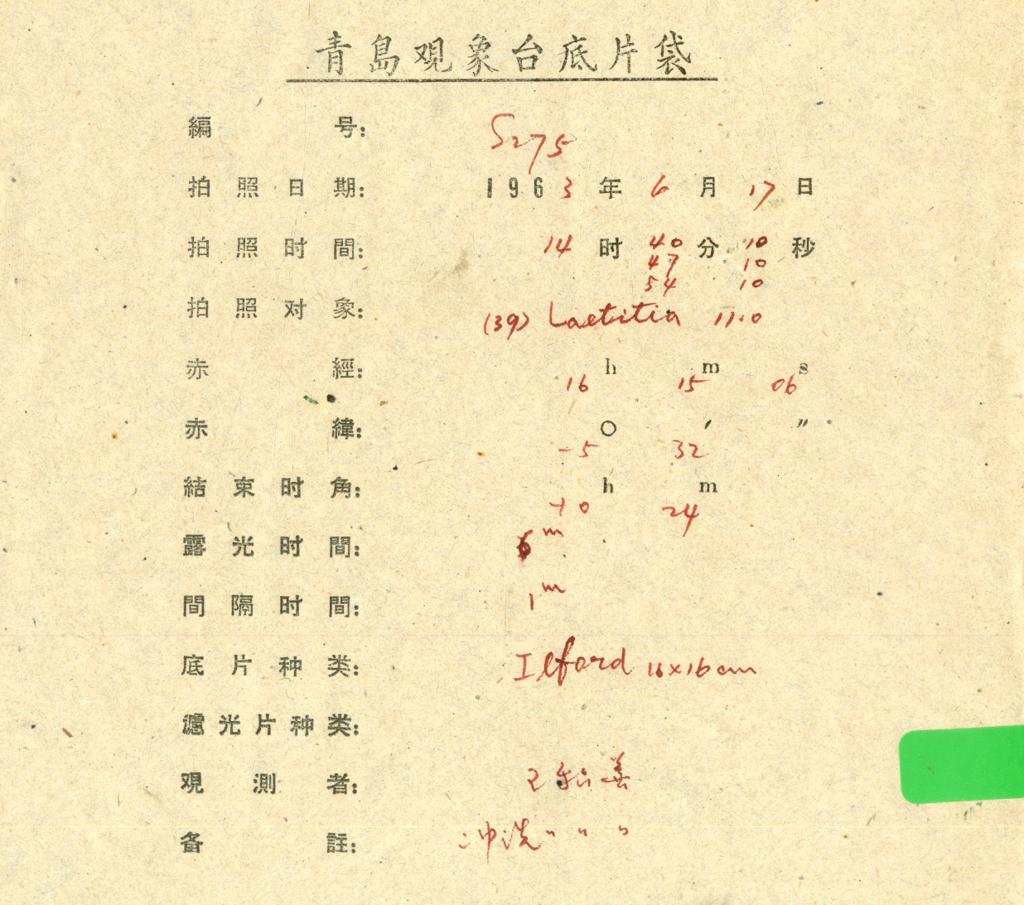 青島观象台底片袋
編号: S275
拍照日期: 1963年6月17日
拍照时間: 14时40分10秒
47 10
54 10
拍照对象: (39) Laetitia 11.0
赤經: 16h 15m 06s
赤緯: -5° 32′ ″
結束时角: +0h 24m
露光时間: 6m
間隔时間: 1m
底片种类: Ilford 16×16cm
濾光片种类:
观測者: 王 善
备註: 冲洗 〃 〃 〃